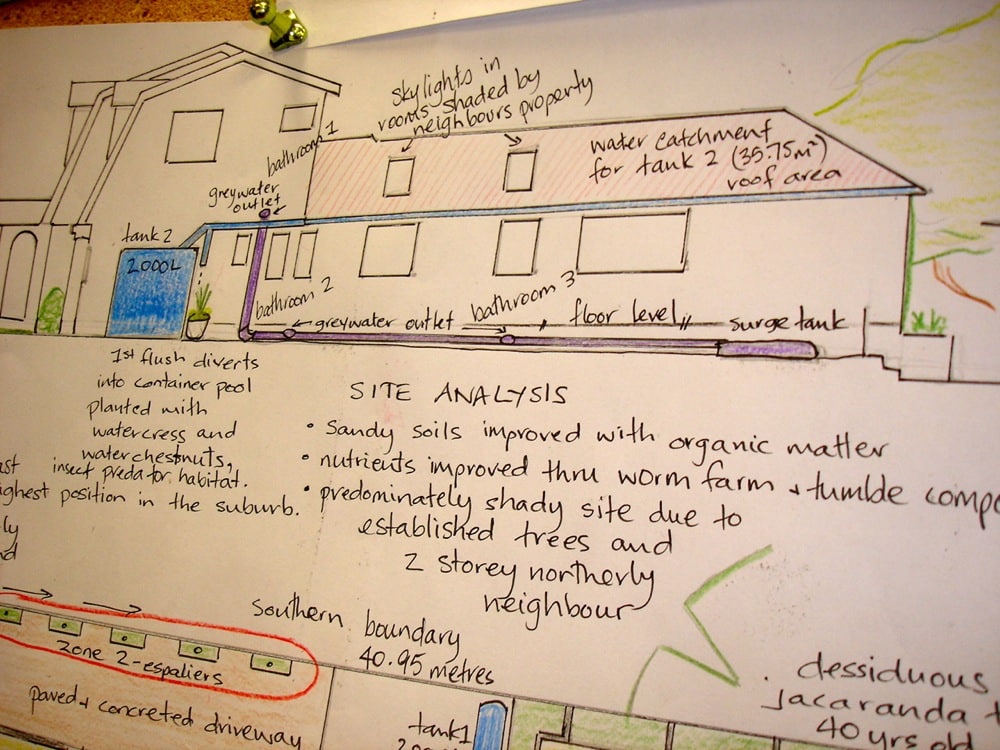 skylights in
rooms shaded by
neighbours property
bathroom 1
water catchment
for tank 2 (35.75m²)
roof area
greywater
outlet
tank 2
2000L
bathroom 2
greywater outlet
bathroom 3
floor level
surge tank
1st flush diverts
into container pool
planted with
watercress and
waterchestnuts,
insect predator habitat.
ghest position in the suburb.
SITE ANALYSIS
• Sandy soils improved with organic matter
• nutrients improved thru worm farm + tumble compo
• predominately shady site due to
established trees and
2 storey northerly
neighbour
Southern boundary
40.95 metres
zone 2-espaliers
paved + concreted driveway
tank 1
dessiduous
jacaranda
40 yrs old